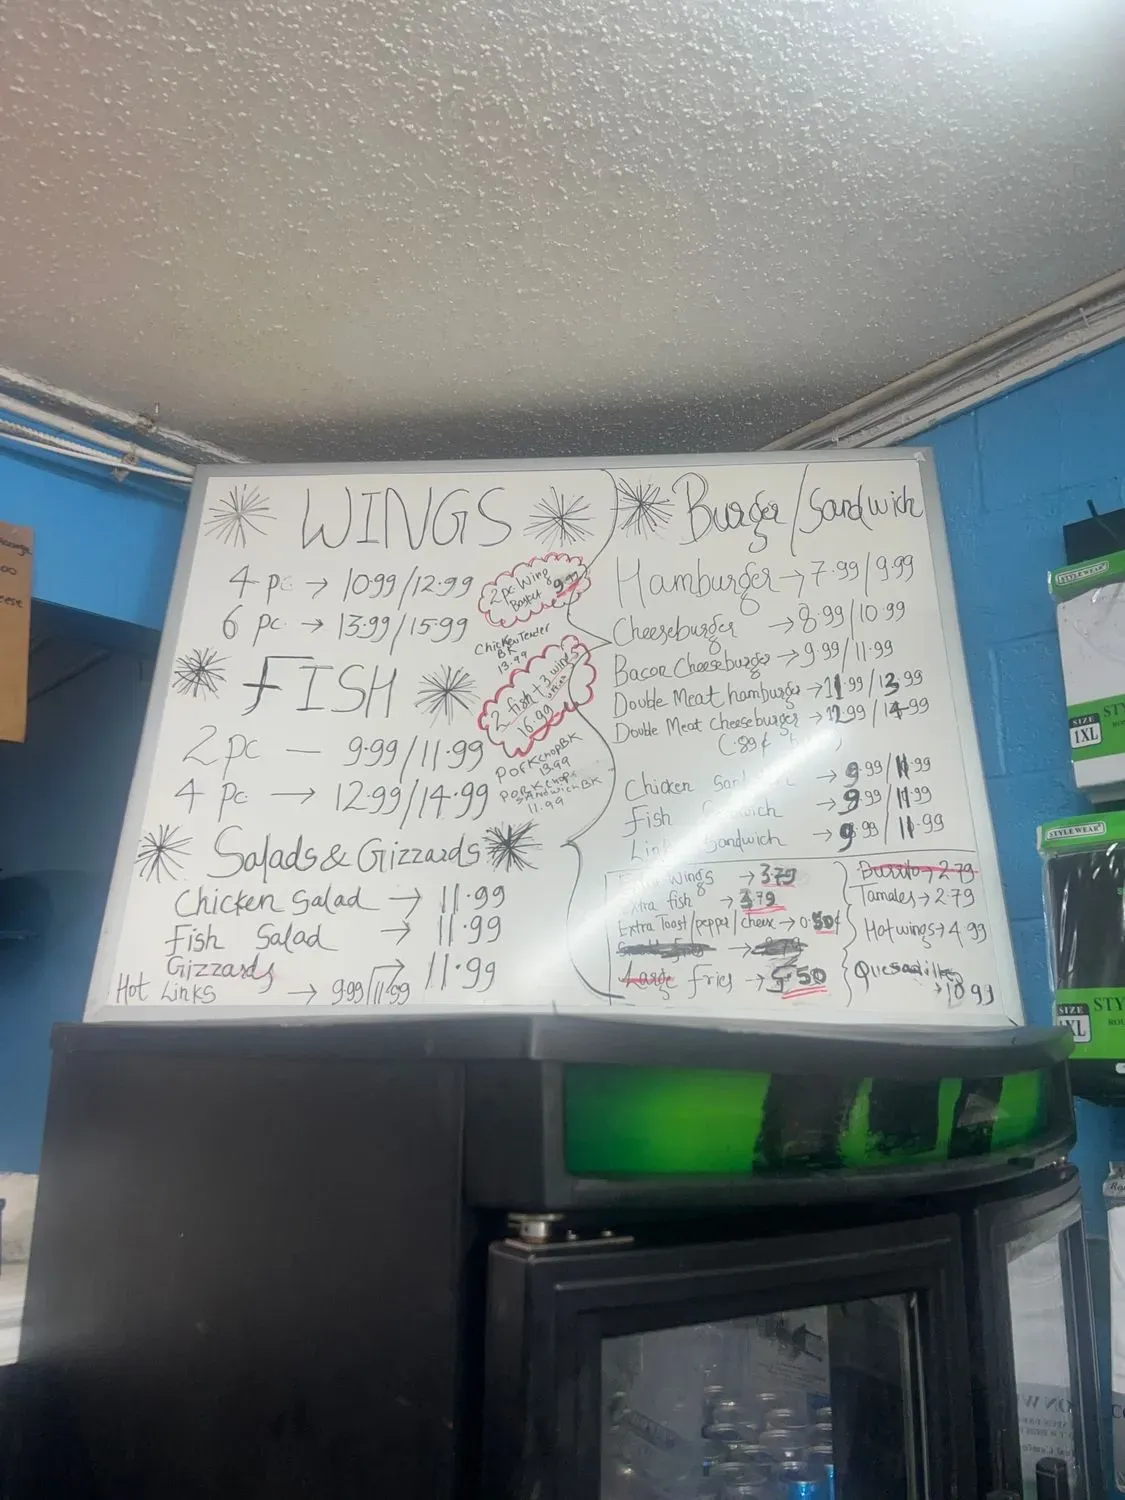 WINGS
4 pc → 10.99/12.99
6 pc. → 13.99/15.99
2 pc Wing
Basket 9.99
Chicken Tender
BK
13.99
FISH
2 pc — 9.99/11.99
4 pc → 12.99/14.99
2 fish + 3 wings
16.99
PORKCHOP BK
13.99
PORK CHOP
SANDWICH BK
11.99
Salads & Gizzards
Chicken Salad → 11.99
Fish Salad → 11.99
Gizzards → 11.99
Hot Links → 9.99/11.99
Burger/Sandwich
Hamburger → 7.99/9.99
Cheeseburger → 8.99/10.99
Bacon Cheeseburger → 9.99/11.99
Double Meat hamburger → 11.99/13.99
Double Meat Cheeseburger → 12.99/14.99
(.89¢
Chicken Sandwich → 9.99/11.99
Fish Sandwich → 9.99/11.99
Link Sandwich → 9.99/11.99
Extra Wings → 3.79
Extra fish → 3.79
Extra Toast/pepper/cheese → 0.50¢
Large fries → 5.50
Burrito → 2.79
Tamales → 2.79
Hotwings → 4.99
Quesadilla
→ 10.99
STYLE WEAR
SIZE
1XL
STY
STYLE WEAR
SIZE
1XL
STY